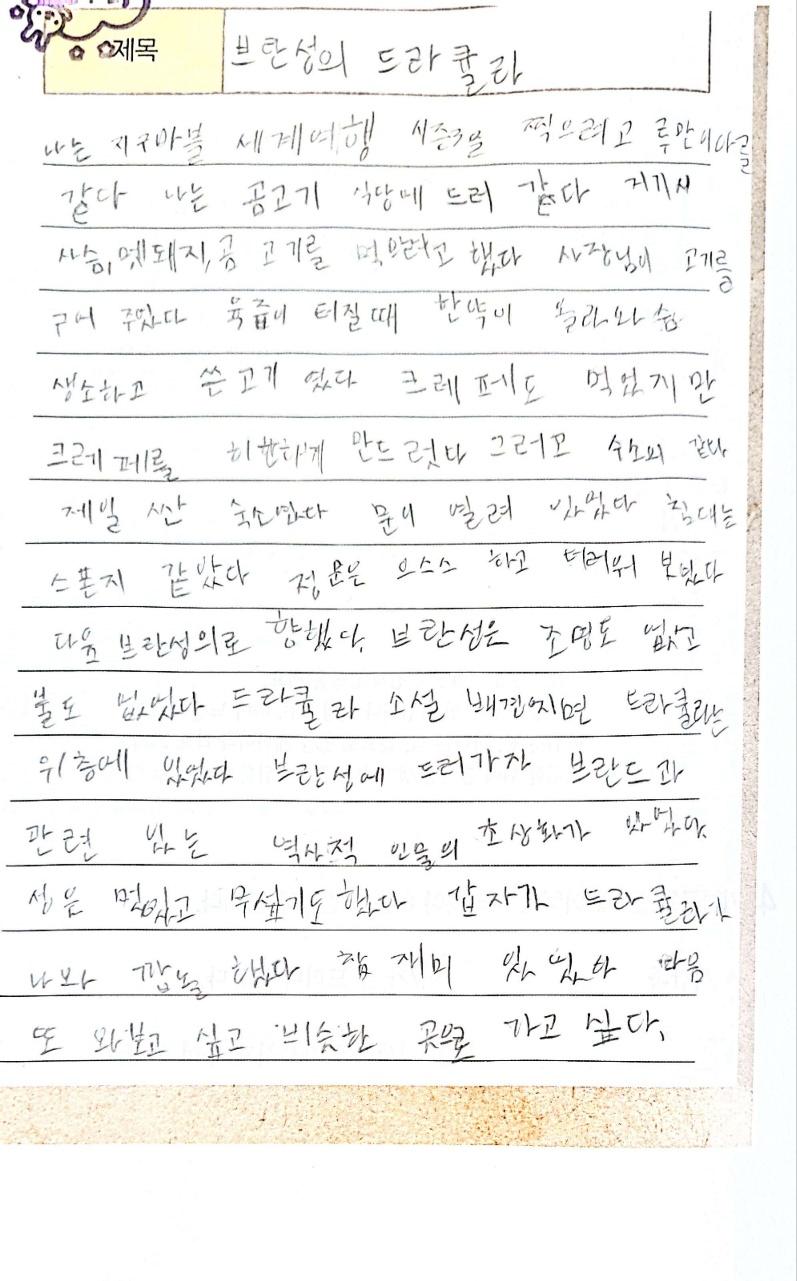 제목
브탄성의 드라큘라
나는 지구마블 세계여행 시즌3을 찍으려고 루만이다를
갔다 나는 곰고기 식당에 드러 갔다 거기서
사슴,멧돼지,곰 고기를 먹으라고 했다 사장님이 고기를
구어 주었다 육즙이 터질때 한약이 올라와 슴
생소하고 쓴고기 였다 크레페도 먹었지만
크레페를 희한하게 만드렀다 그러고 숙소의 갔다
제일 싼 숙소였다 문이 열려 있었다 침대는
스폰지 같았다 정문은 으스스 하고 더러워 보였다
다음 브란성의로 향했다. 브란성은 조명도 없고
불도 없었다 드라큘라 소설 배견지면 드라큘라는
위층에 있었다 브란성에 드러가자 브란드과
관련 있는 역사적 인물의 초상화가 있었다
성은 멋있고 무섭기도 했다 갑자가 드라큘라가
나와 깜놀 했다 참 재미 있었다 다음
또 와보고 싶고 비슷한 곳으로 가고 싶다.